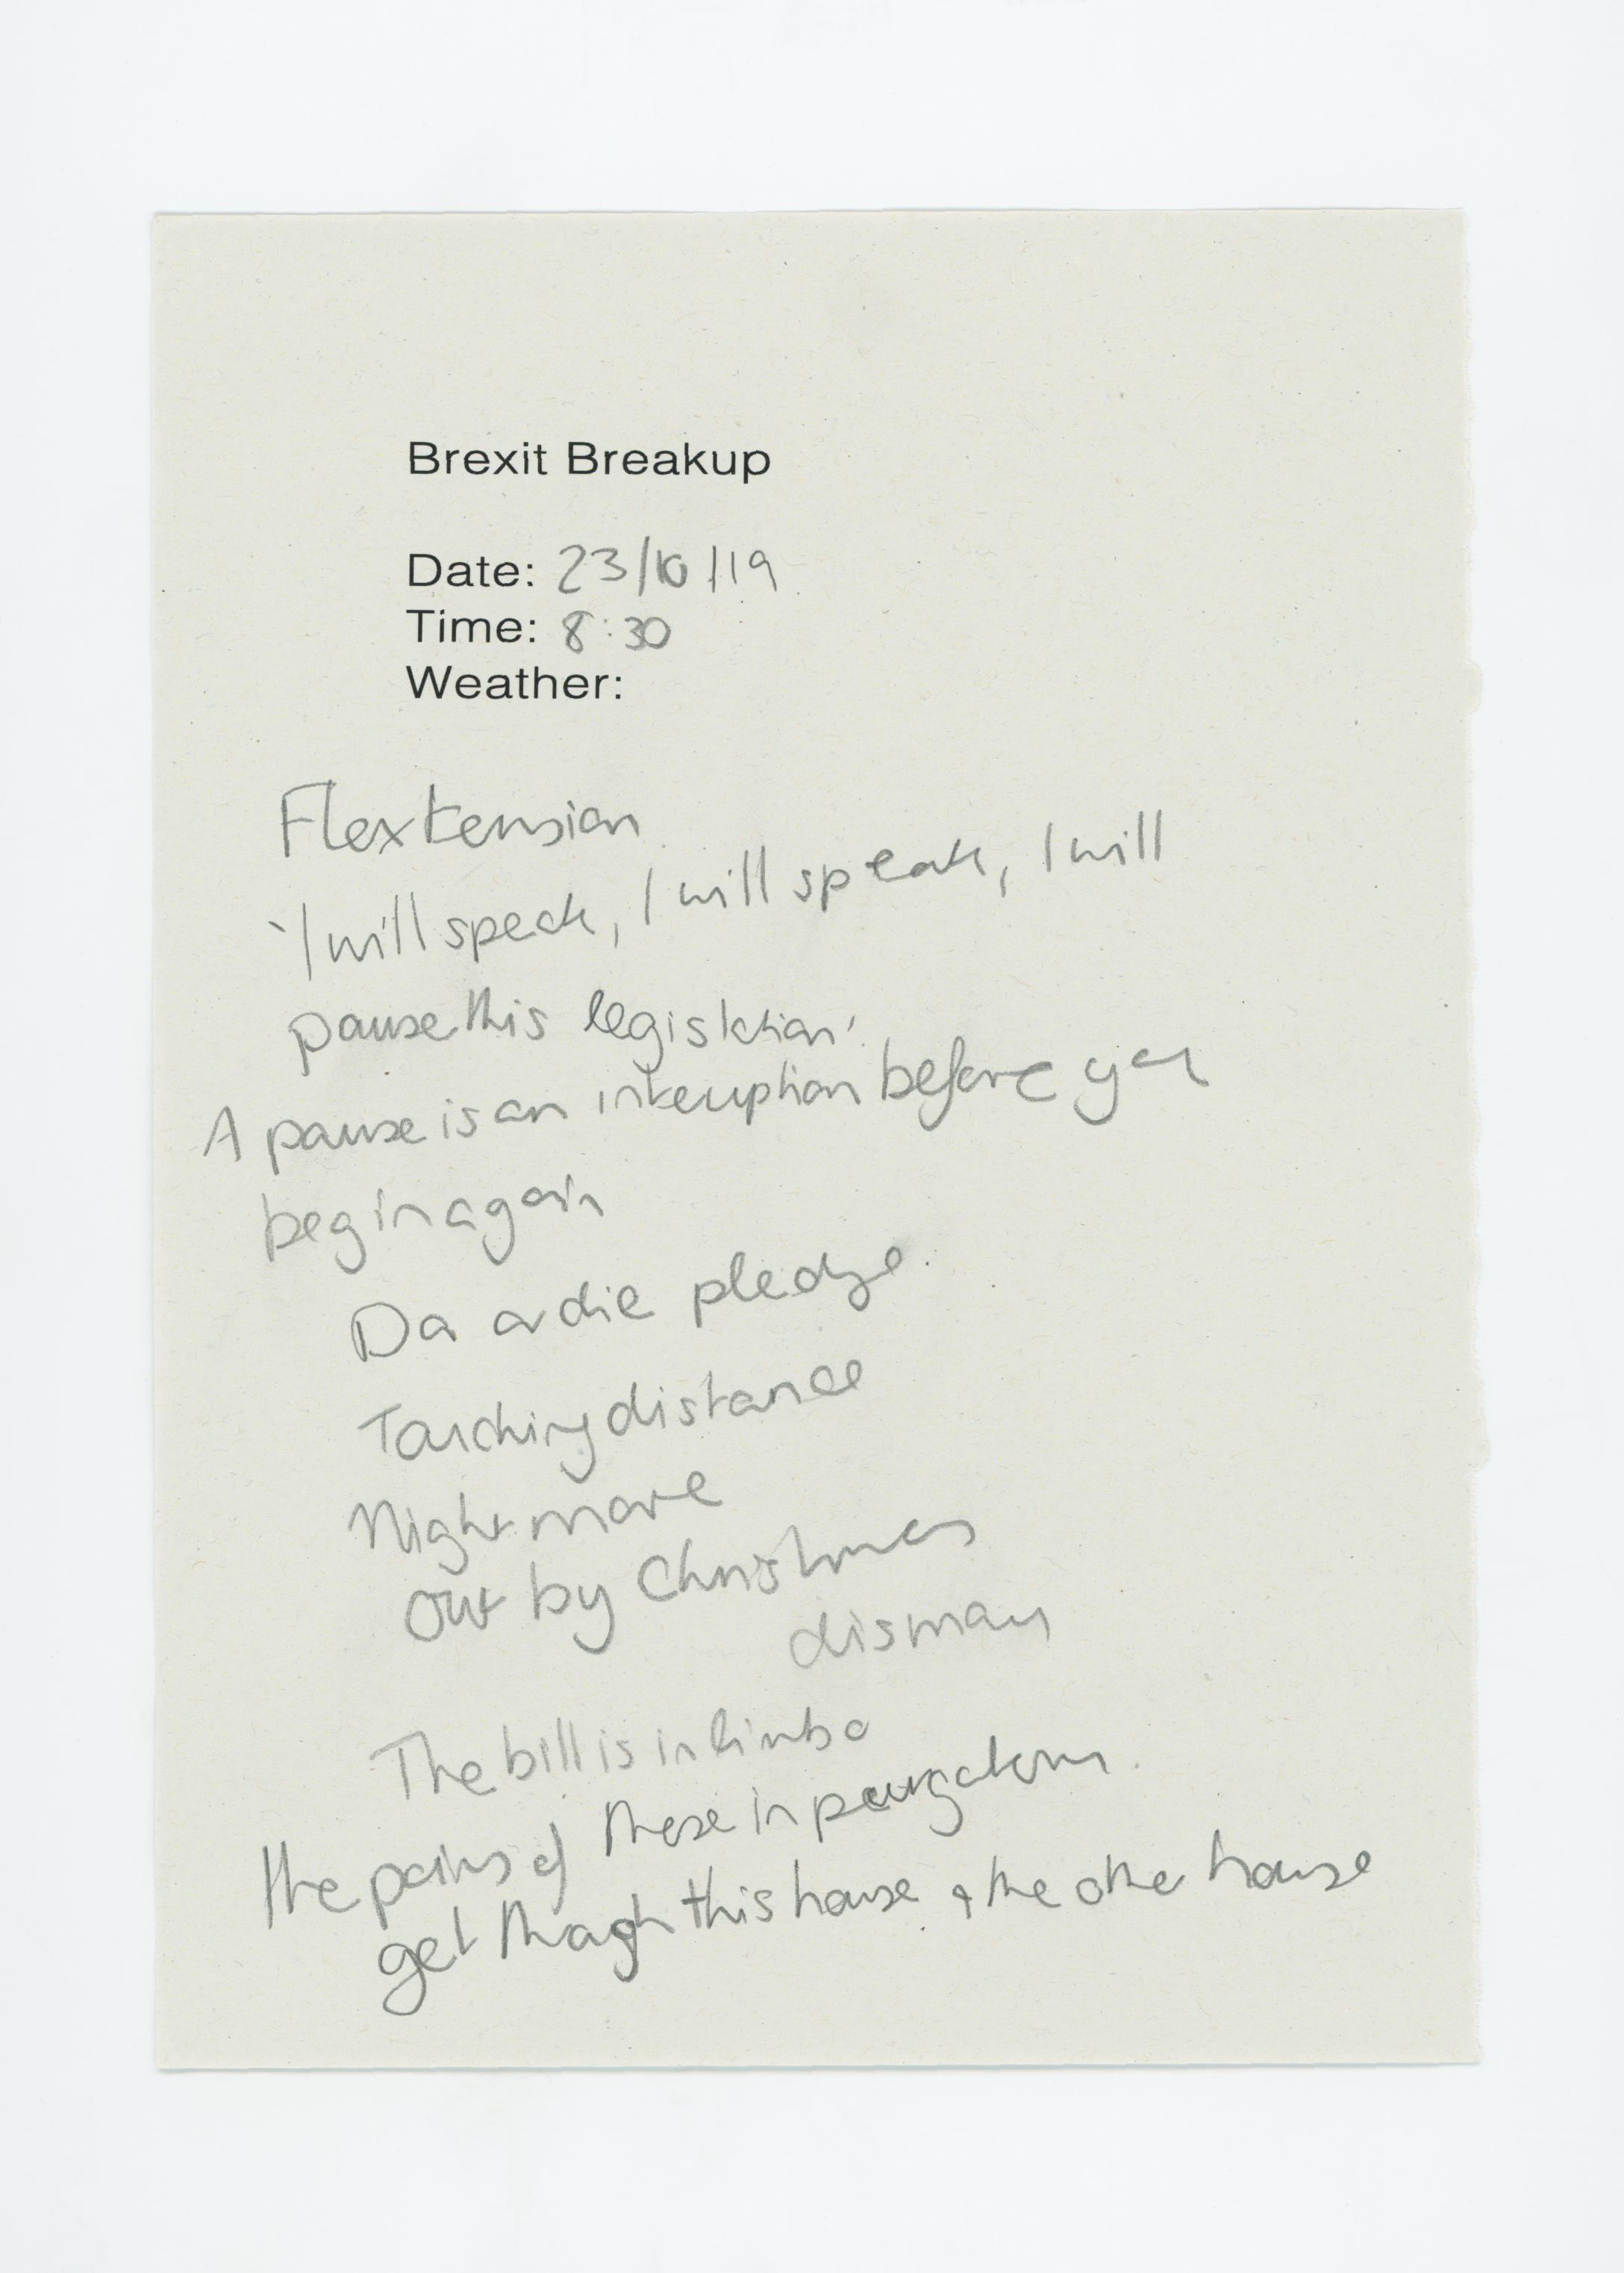 Brexit Breakup
Date: 23/10/19
Time: 8:30
Weather:
Flextension
'I will speak, I will speak, I will
pause this legislation'.
A pause is an interuption before you
begin again
Do or die pledge.
Touching distance
Nightmare
Out by Christmas
dismay
The bill is in limbo
the pains of those in purgatory.
get through this house & the other house